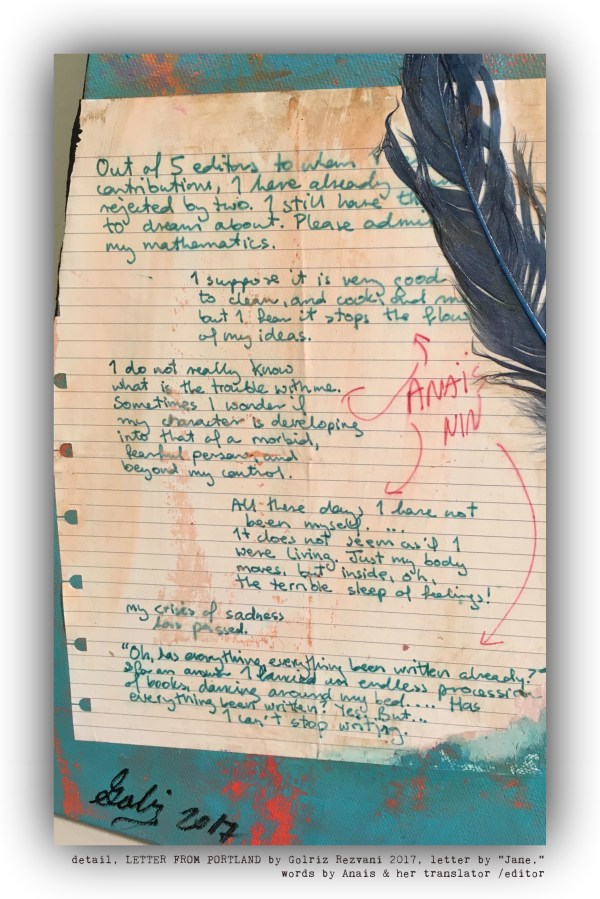 Out of 5 editors to whom I
contributions, I have already
rejected by two. I still have
to dream about. Please
my mathematics.
I suppose it is very good
to clean, and cook, and
but I fear it stops the flow
of my ideas.
I do not really know
what is the trouble with me.
Sometimes I wonder if
my character is developing
into that of a morbid,
fearful person, and
beyond my control.
ANAIS
NIN
All these days I have not
been myself. ...
It does not seem as if I
were living. Just my body
moves, but inside, oh,
the terrible sleep of feelings!
my crises of sadness
has passed.
"Oh, has everything, everything been written already?"
& for an answer I fancied an endless procession
of books, dancing around my bed.... Has
everything been written? Yes! But...
I can't stop writing.
2017
detail, LETTER FROM PORTLAND by Golriz Rezvani 2017, letter by "Jane,"
words by Anais & her translator /editor